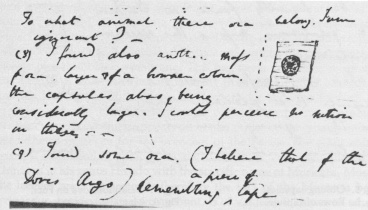 To what animal these ova belong I am
ignorant I —
(8) I found also another mass
from larger & of a browner colour.
the capsules also being
considerably larger. I could perceive no motion
in these. - -
(9) Found some ova. (I believe that of the
Doris Argo) resembling a piece of tape